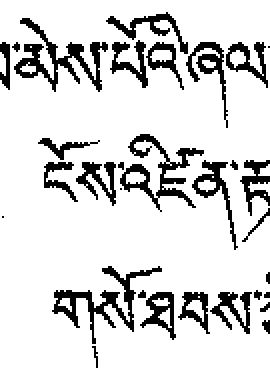 མེས་པོའི་ཞལ
ངོས་འཛིན་རྟ
གསོ་ཐབས་